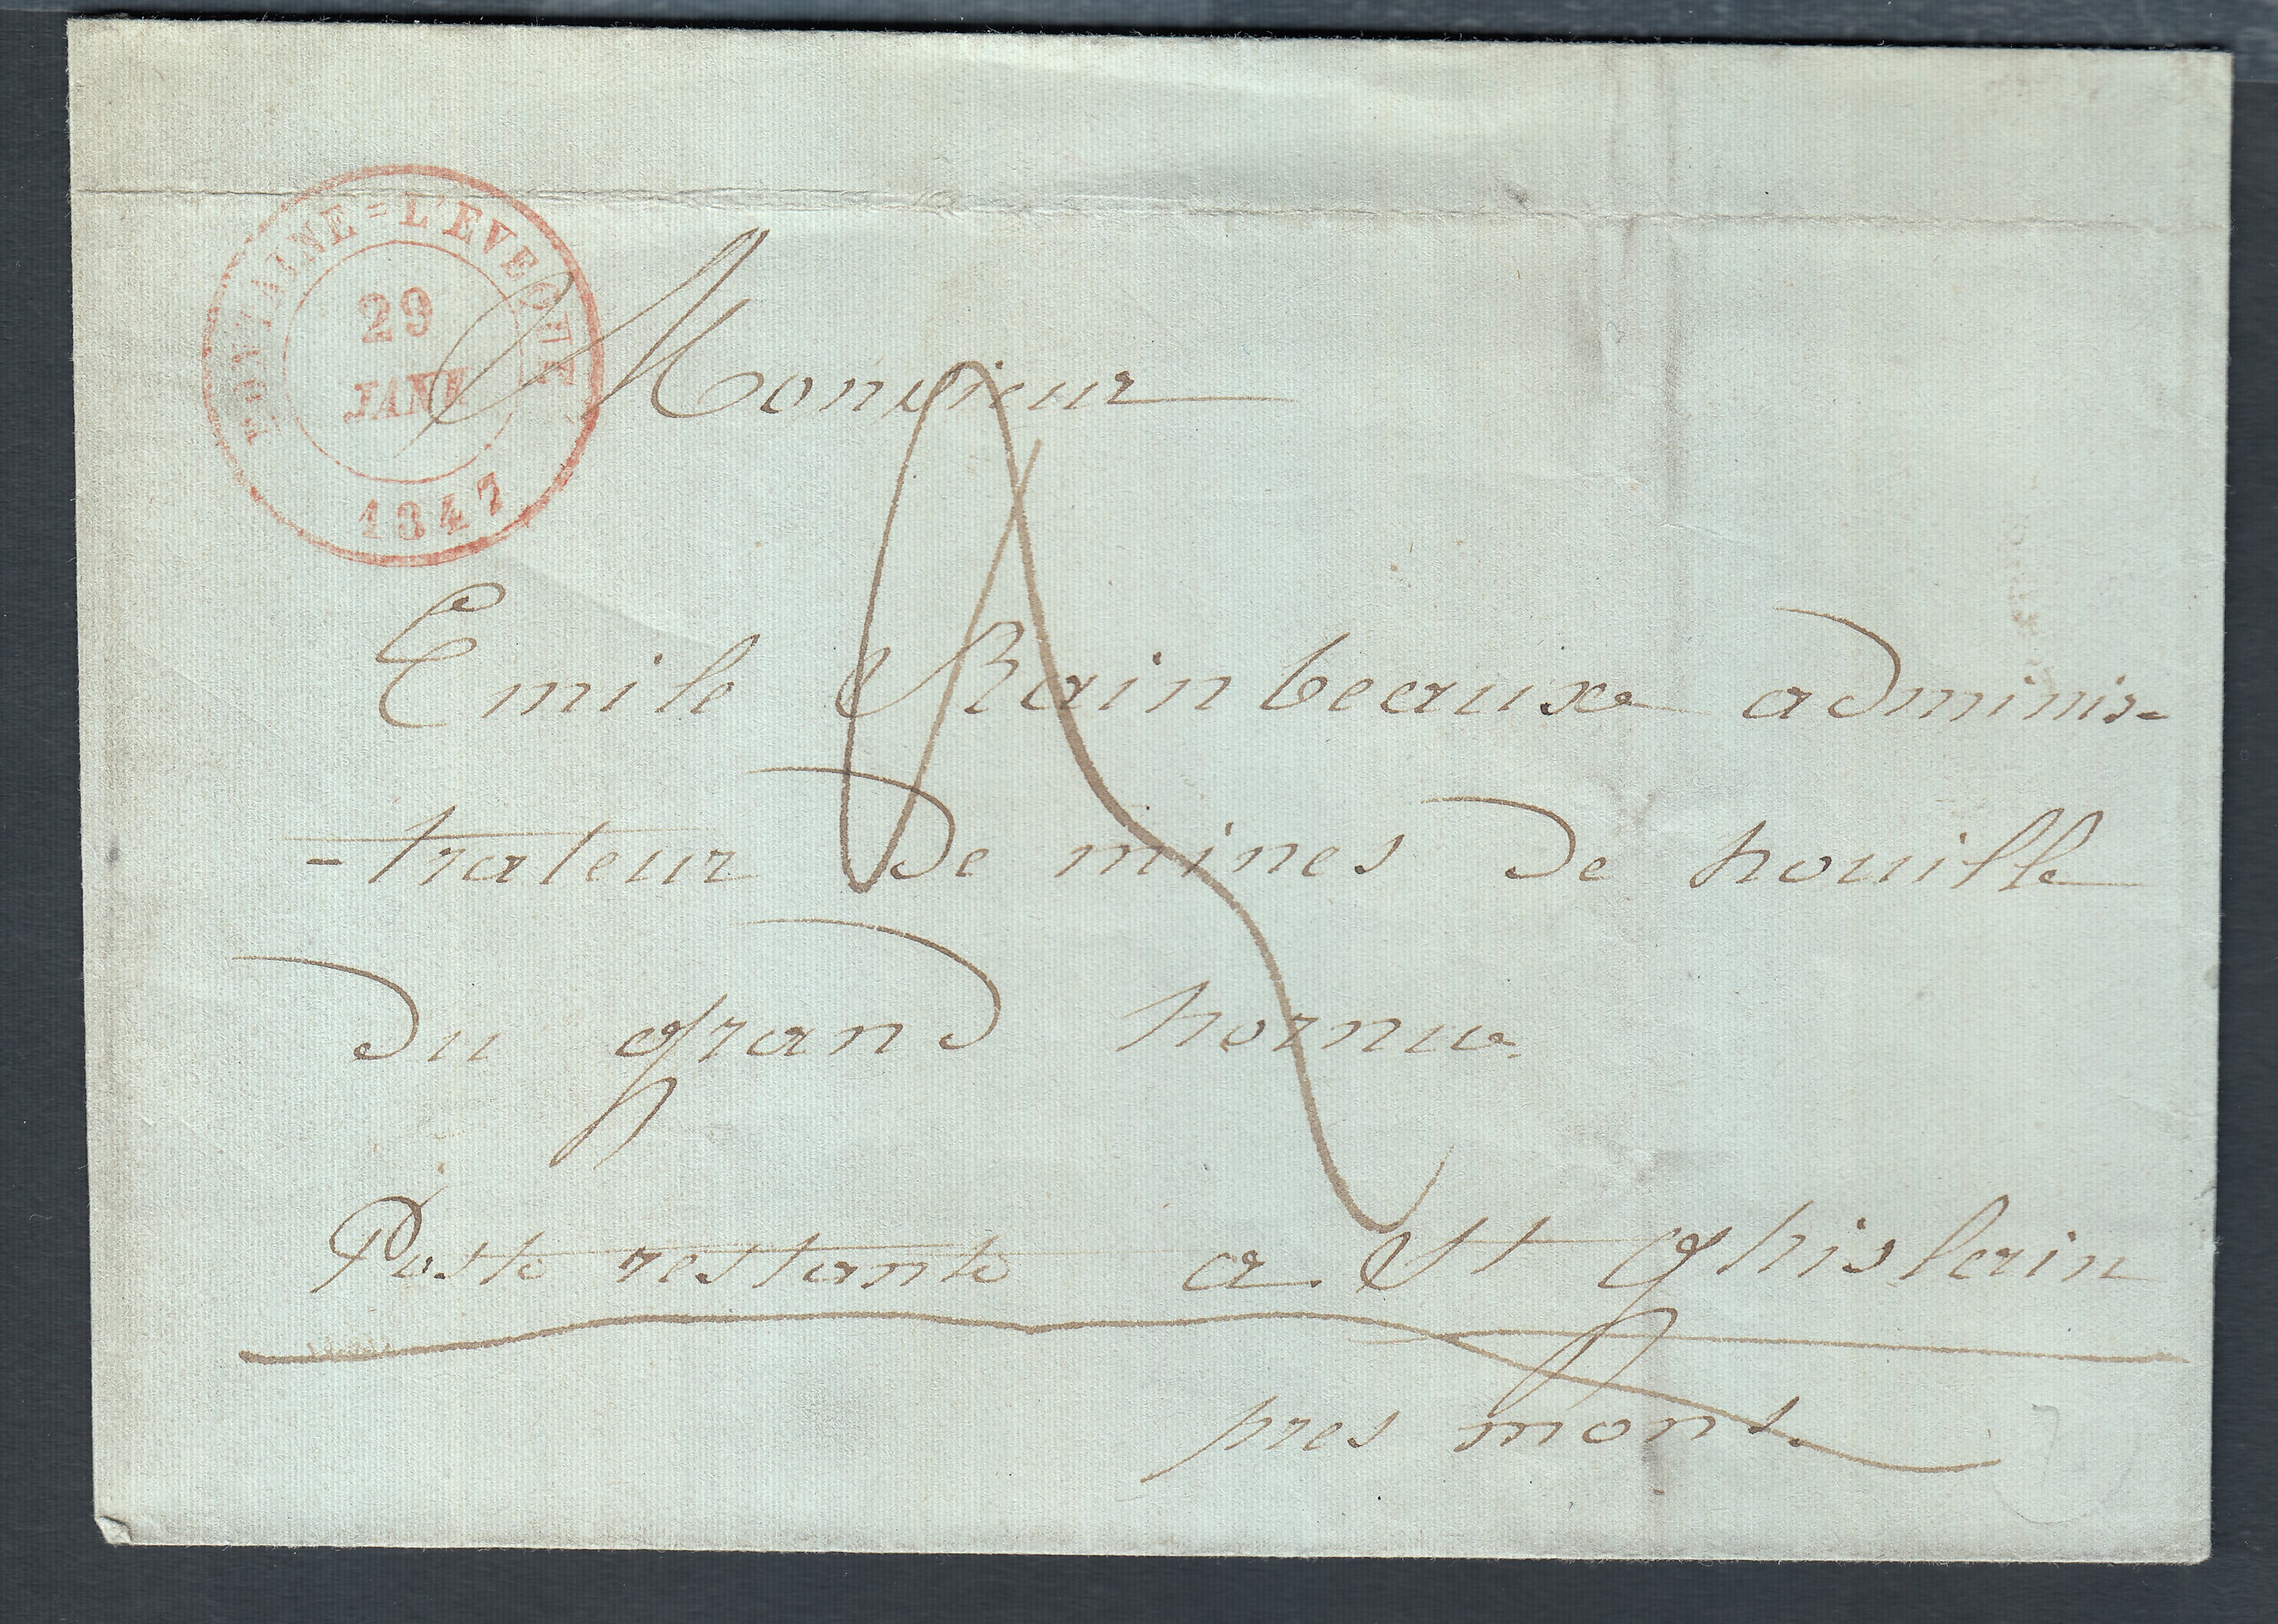 FONTAINE=L'EVEQUE
29
JANV
1847
Monsieur
Emile Rainbeaux adminis-
-trateur de mines de houille
du grand hornu
Poste restante a St ghislain
pres mons.